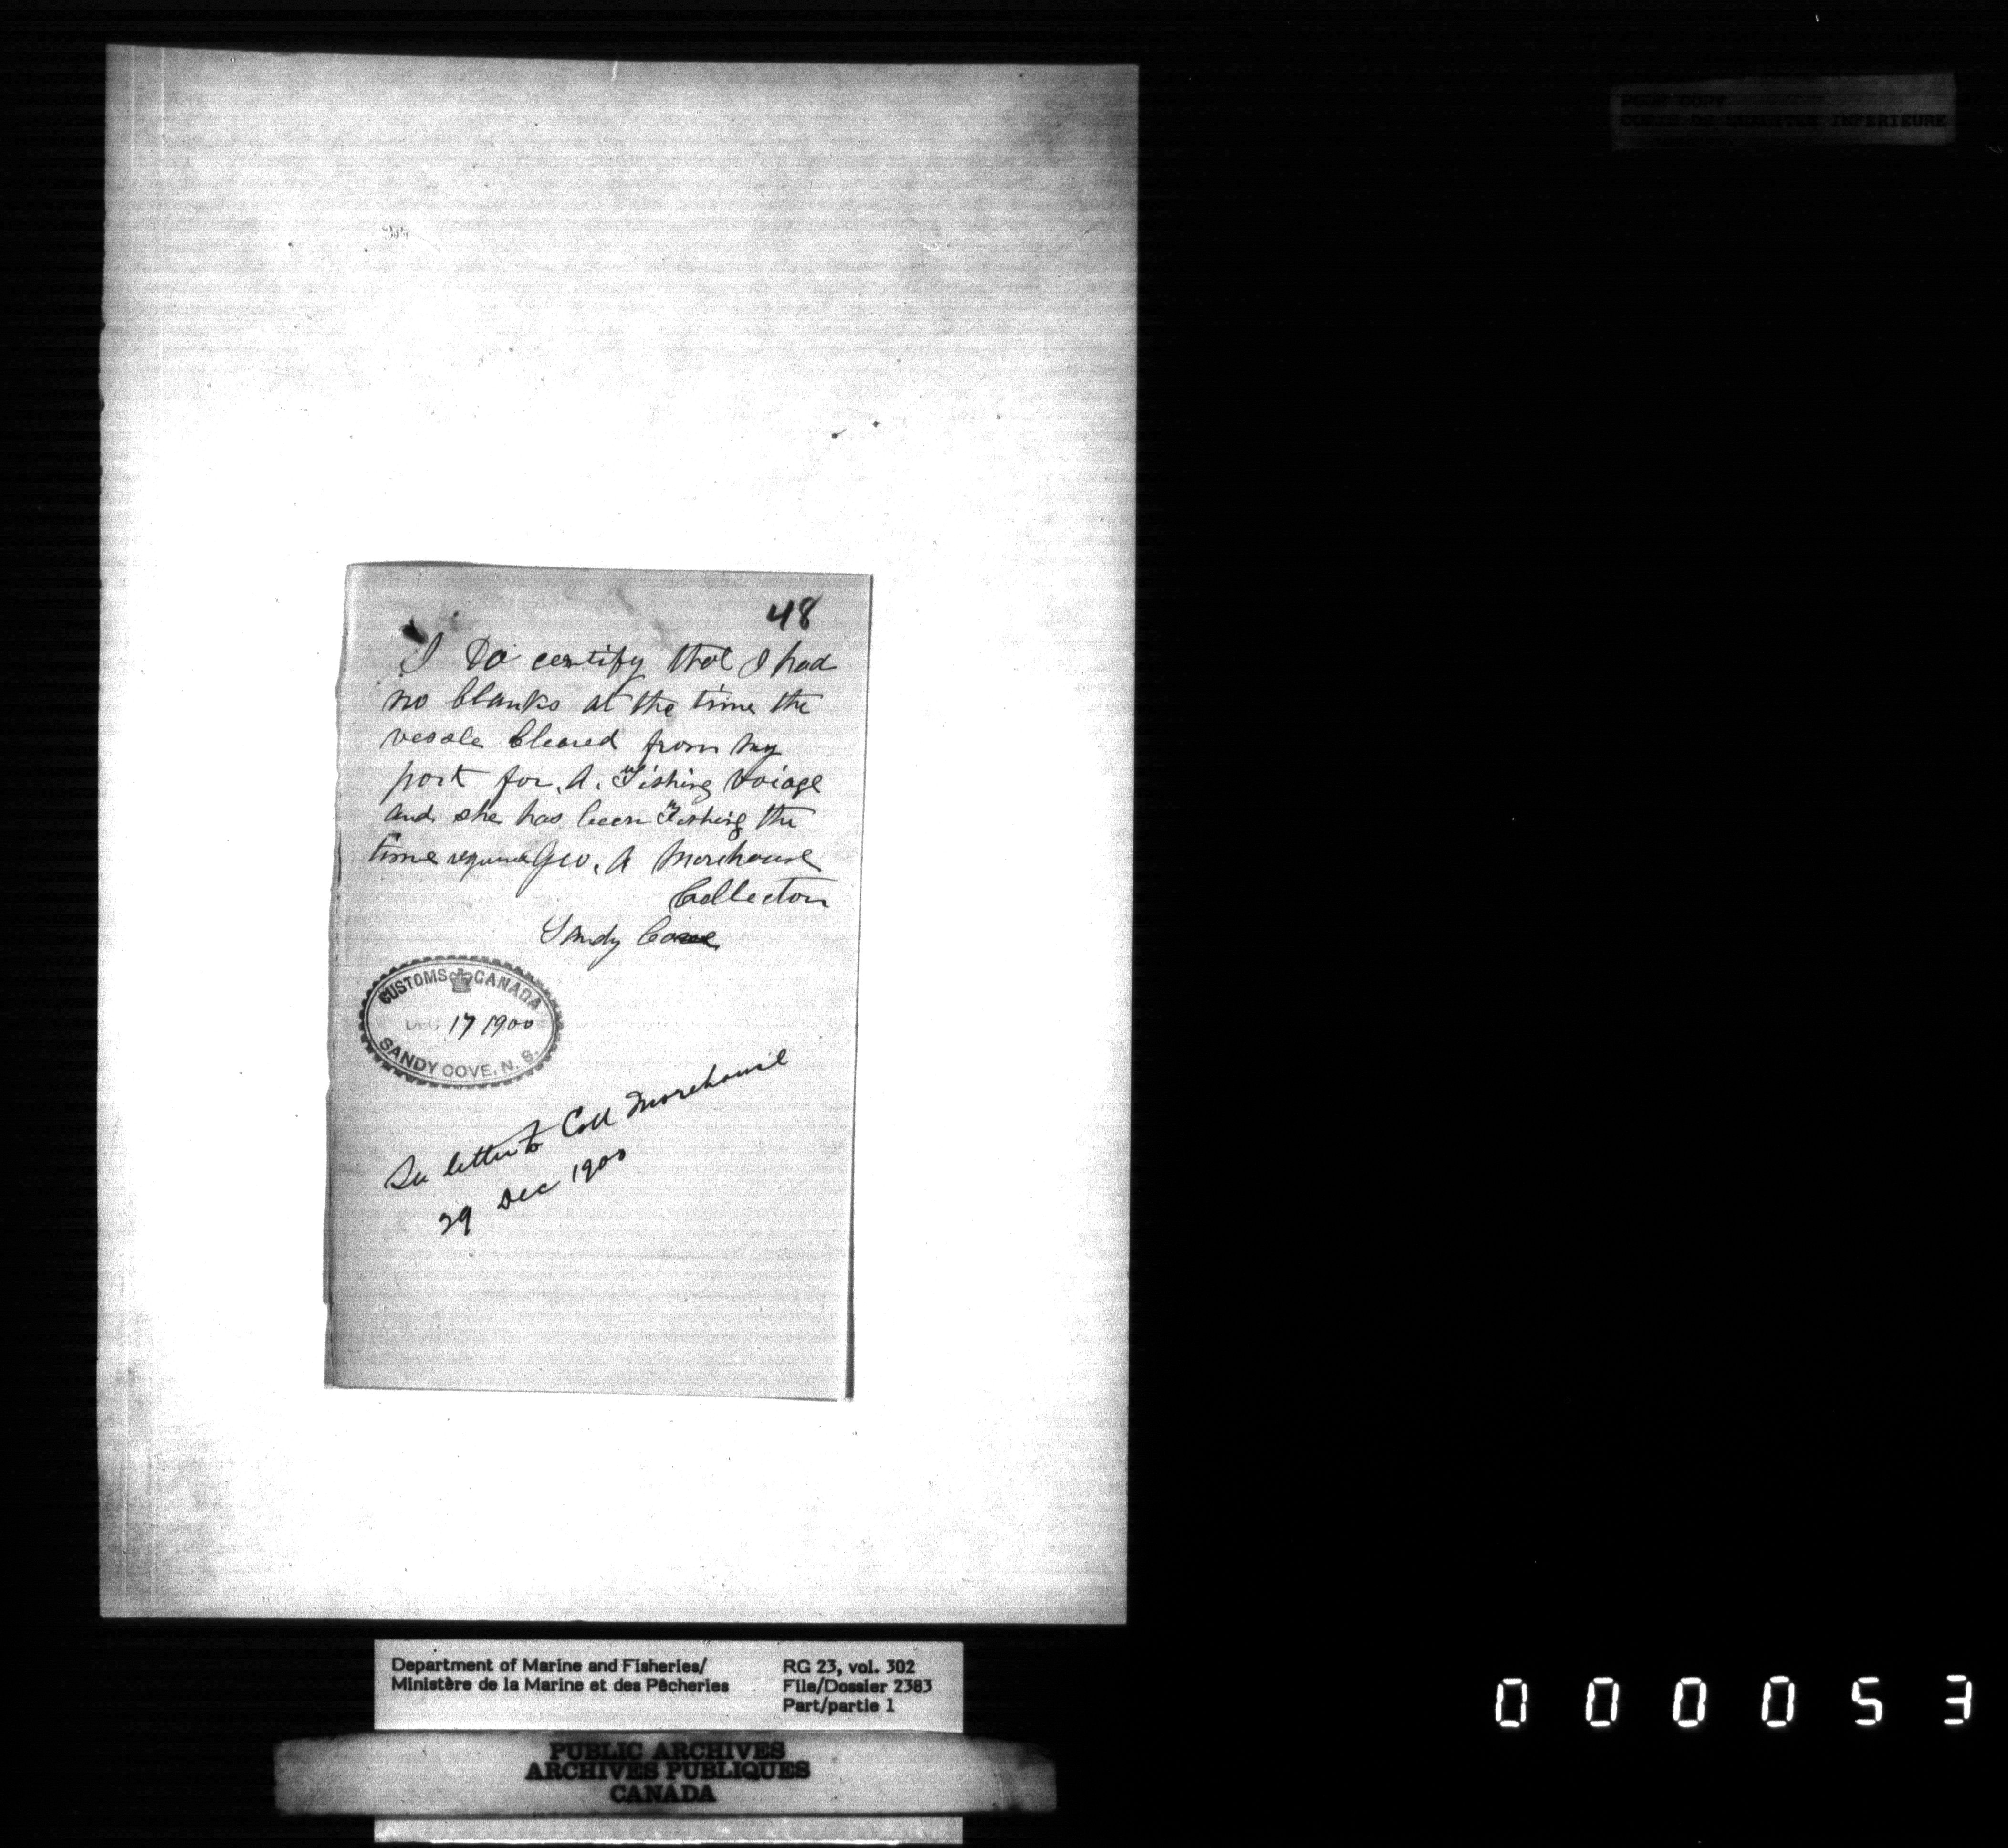 POOR COPY
COPIE DE QUALITEE INFERIEURE
48
I Do certify that I had
no blanks at the time the
vessle Cleared from my
port for. A. Fishing voiage
and she has been Fishing the
time required Geo. A Morehouse
Collector
Sandy Cove
CUSTOMS CANADA
DEC 17 1900
SANDY COVE, N. S.
See letter to Coll Morehouse
29 Dec 1900
Department of Marine and Fisheries/
Ministère de la Marine et des Pêcheries
RG 23, vol. 302
File/Dossier 2383
Part/partie 1
PUBLIC ARCHIVES
ARCHIVES PUBLIQUES
CANADA
000053